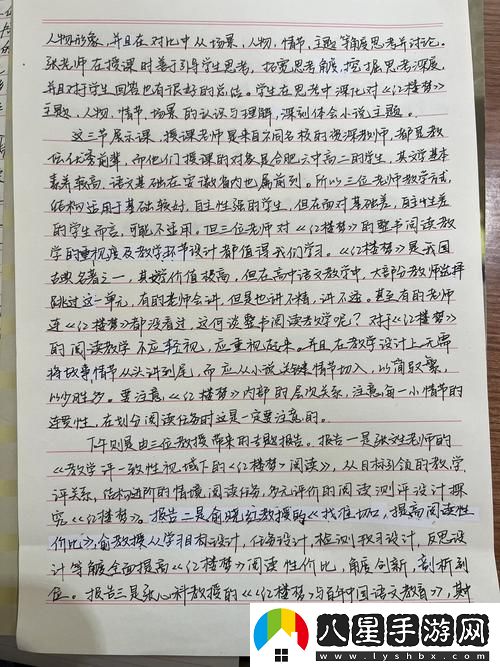 人物形象，并且在对比中从场景，人物，情节，主题等角度思考并讨论。
张老师在授课时善于引导学生思考，拓宽思考角度，挖掘思考深度，
并且对于学生回答也有很好的总结。学生在思考中深化对《红楼梦》
主题，人物，情节，场景的认识与理解，深刻体会小说主题。
这三节展示课，授课老师是来自不同名校的资深教师，都是教
坛优秀前辈，而他们授课的对象是合肥六中高二的学生，其文学基本
素养较高，语文基础在安徽省内也属前列。所以三位老师教学方式，
结构适用于基础较好，自主性强的学生，但在面对基础差，自主性差
的学生而言，可能不适用，但三位老师对《红楼梦》的整书阅读教
学的重视度及教学环节设计都值得我们学习。《红楼梦》是我国
古典名著之一，其价值极高，但在高中语文教学中，大部分教师选择
跳过这一单元，有的老师会讲，但是也讲不精，讲不透。甚至有的老师
连《红楼梦》都没看过，这何谈整书阅读教学呢？对于《红楼梦》
的阅读教学不应轻视，应重视起来。并且在教学设计上无需
将故事情节从头讲到尾，而应从小说关键情节切入，以简驭繁，
以少胜多。要注意，《红楼梦》内部的层次关系，注意每一小情节的
连贯性，在划分阅读任务时这是一定要注意的。
下午则是由三位教授带来的专题报告。报告一是张老师的
《教学评一致性视域下的《红楼梦》阅读》，从目标引领的教学
评关系，结构进阶的情境阅读任务，多元评价的阅读测评设计探
究《红楼梦》。报告二是俞晓红教授的《找准切口，提高阅读性
价比》，俞教授从学习目标设计，任务设计，检测设计，反思设
计等角度全面提高《红楼梦》阅读性价比，角度创新，剖析到
位。报告三是张心科教授的《《红楼梦》与百年中国语文教育》，其中
八星手游网
www.lyshbx.com